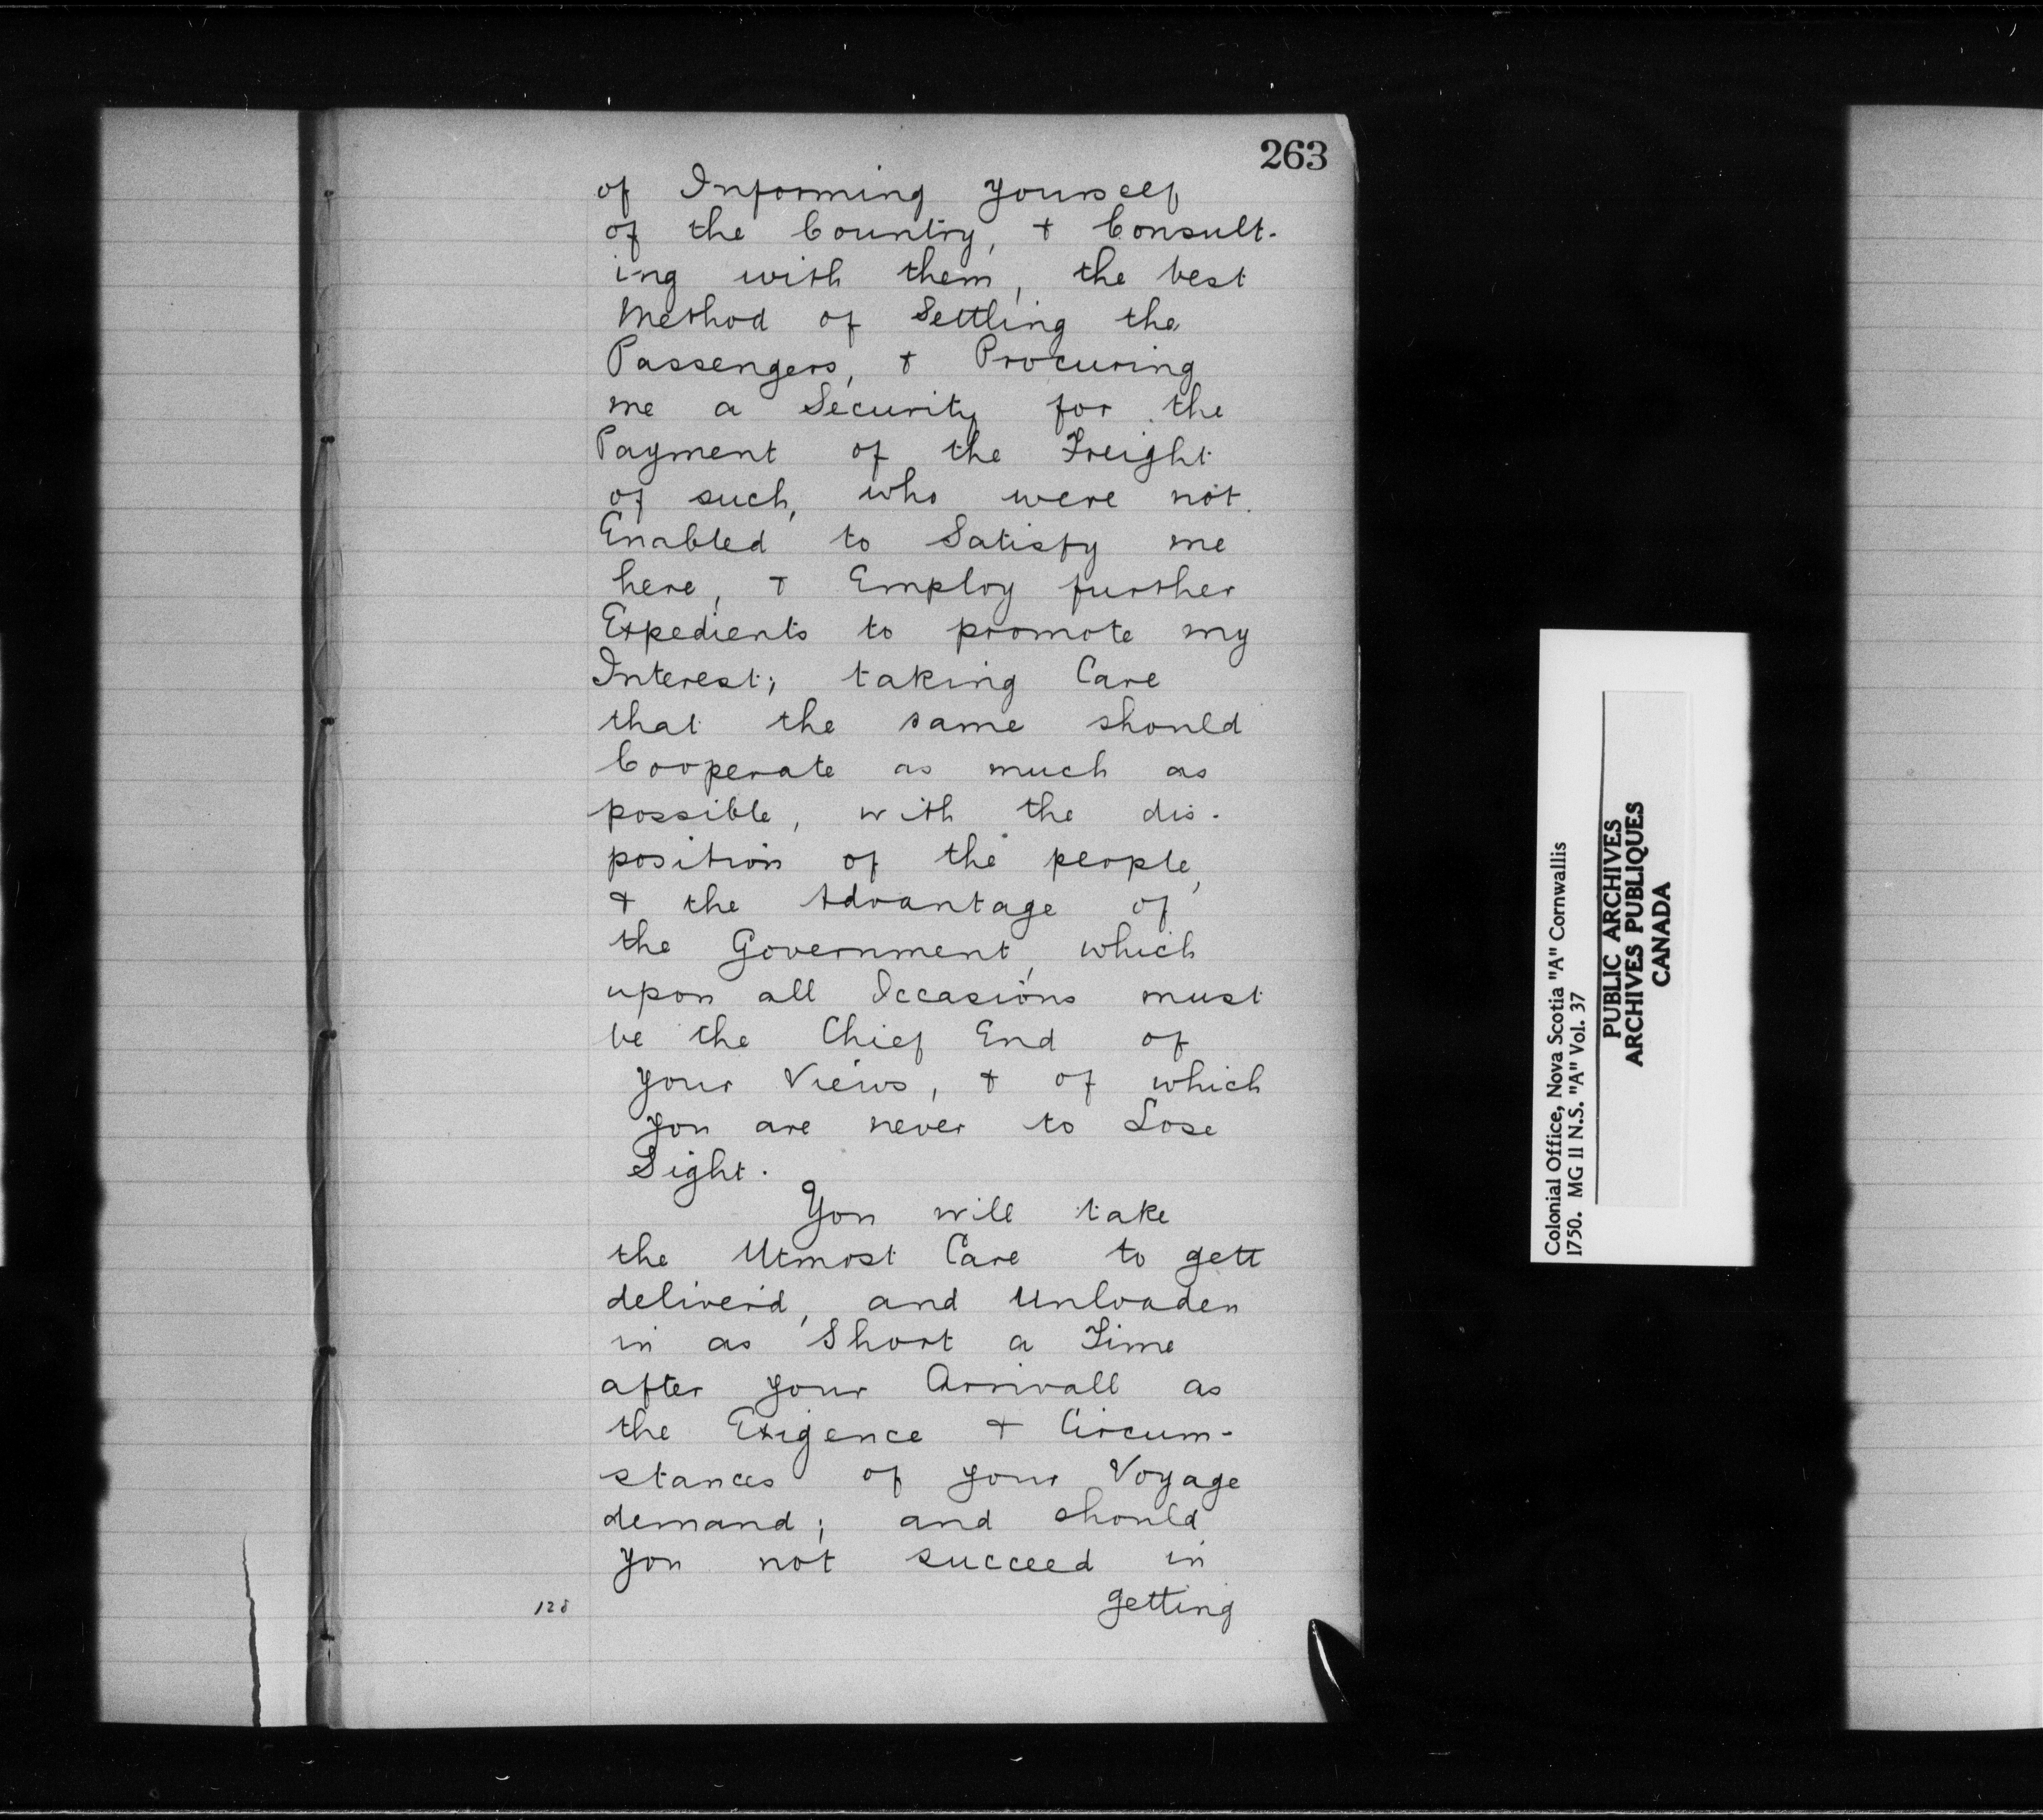 263
of Informing yourself
of the Country, & Consult-
ing with them, the best
Method of Settling the
Passengers, & Procuring
me a Security for the
Payment of the Freight
of such, who were not
Enabled to Satisfy me
here, & Employ further
Expedients to promote my
Interest; taking Care
that the same should
Cooperate as much as
possible, with the dis-
position of the people,
& the Advantage of
the Government, which
upon all Occasions must
be the Chief End of
your Views, & of which
you are never to Lose
Sight.
You will take
the Utmost Care to gett
deliver'd, and Unloaden
in as Short a Time
after your Arrivall as
the Exigence & Circum-
stances of your Voyage
demand; and should
you not succeed in
getting
128
Colonial Office, Nova Scotia "A" Cornwallis
1750. MG 11 N.S. "A" Vol. 37
PUBLIC ARCHIVES
ARCHIVES PUBLIQUES
CANADA